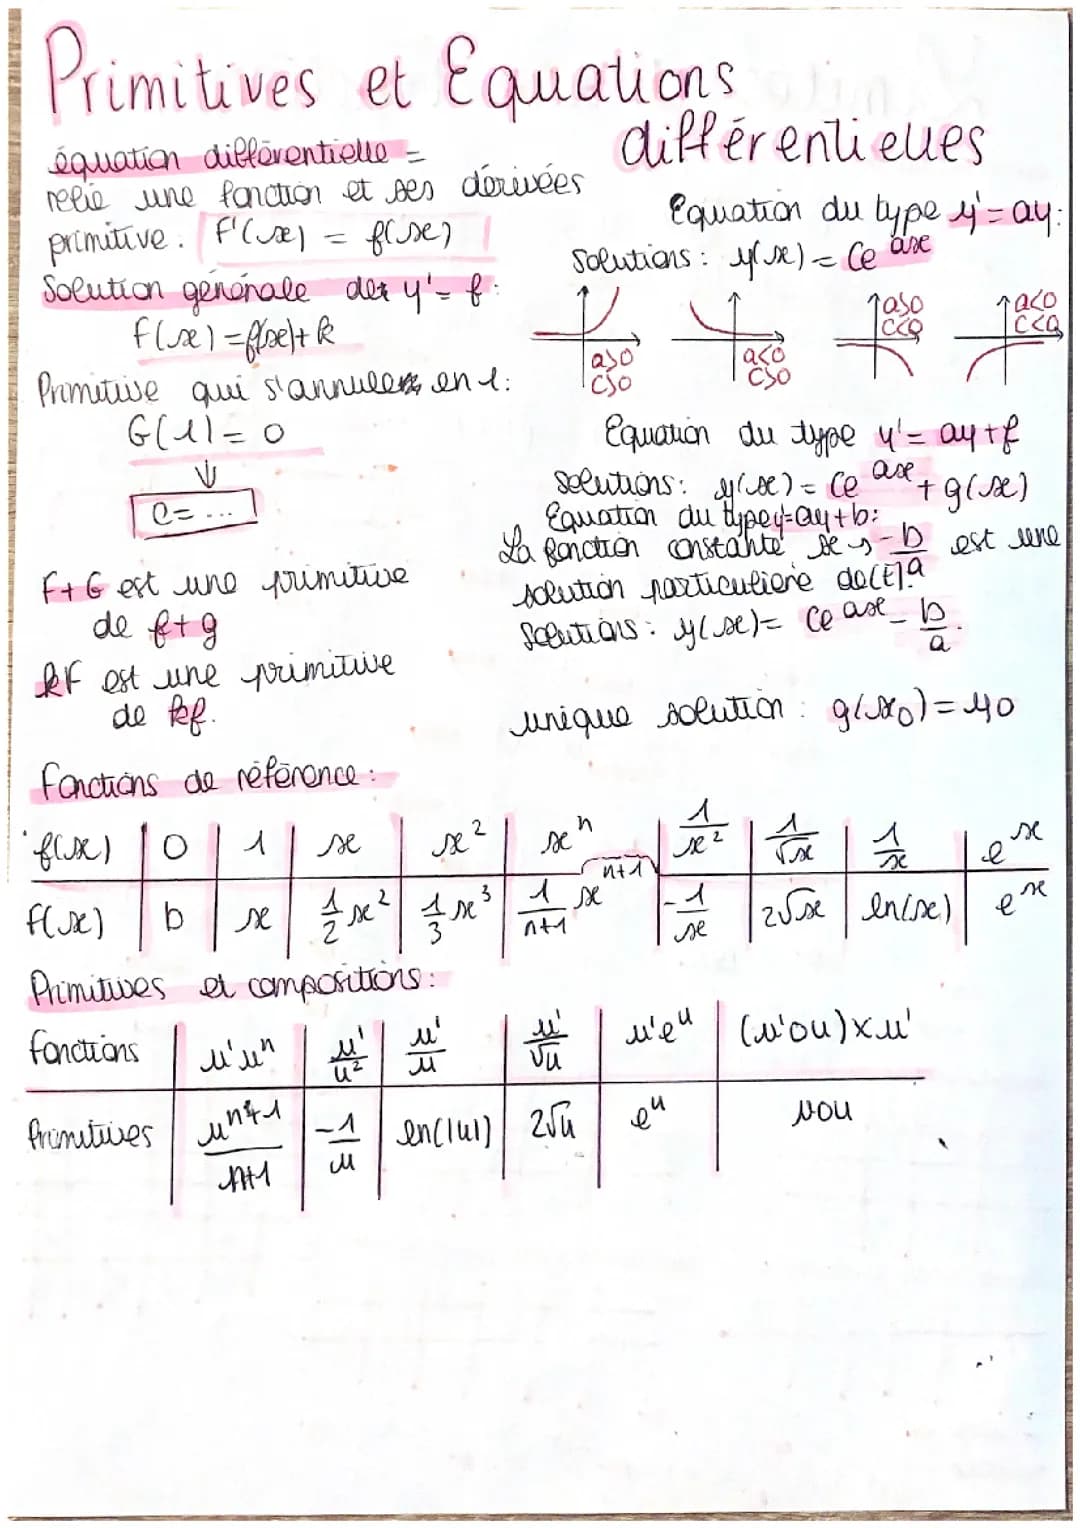 Primitives et Equations
différentielles
équation différentielle =
relie une fonction et ses dérivées
primitive : F'(x) = f(x)
Solution générale de y' = f :
F(x) = f(x) + k
Primitive qui s'annule en 1 :
G(1) = 0
↓
C = ...
F + G est une primitive
de f + g
kF est une primitive
de kf.
Equation du type y' = ay :
Solutions : y(x) = Ce^{ax}
a>0 C>0
a<0 C>0
a>0 C<0
a<0 C<0
Equation du type y' = ay + f
Solutions : y(x) = Ce^{ax} + g(x)
Equation du type y' = ay + b :
La fonction constante x → -b/a est une
solution particulière de (E).
Solutions : y(x) = Ce^{ax} - b/a.
unique solution : g(x₀) = y0
Fonctions de référence :
f(x) | 0 | 1 | x | x² | xⁿ | 1/x² | 1/√x | 1/x | eˣ
F(x) | b | x | 1/2 x² | 1/3 x³ | 1/(n+1) x^{n+1} | -1/x | 2√x | ln(x) | eˣ
Primitives et compositions :
Fonctions | u'uⁿ | u'/u² | u'/u | u'/√u | u'eᵘ | (v'ou)×u'
Primitives | u^{n+1}/(n+1) | -1/u | ln(|u|) | 2√u | eᵘ | vou